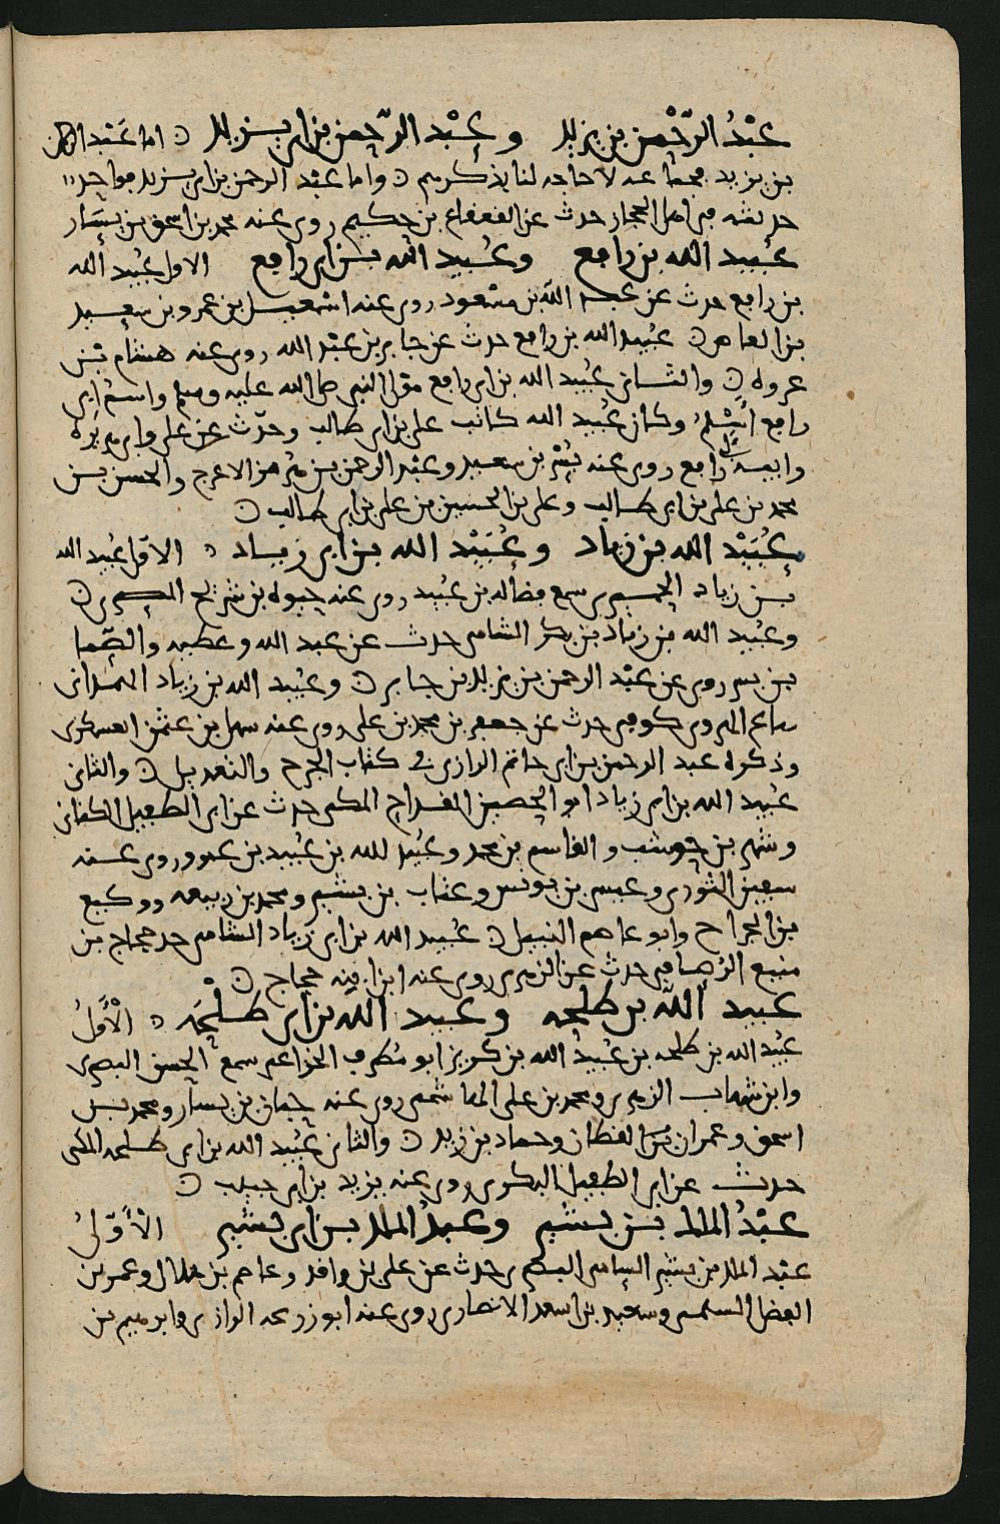 عبْدُ الرّحْمن بن يزيد وعبْد الرّحمن بن ابي يزيد ۞ اما عبْد الرحمن
بن يزيد فجماعه لا حاجه لنا بذكرهم ۞ واما عبْد الرحمن بن ابي يزيد فواحد
حديثه في اهل الحجاز حدث عن القعقاع بن حكيم روى عنه محمد بن اسحق بن يسَار
عبُيد الله بن رافع وعُبيد الله بن ابي رافع الاول عُبيد الله
بن رافع حدث عن عبد الله بن مسْعود روى عنه اسْمعيل بن عمرو بن سعيد
بن العاص ۞ عبُيد الله بن رافع حدث عن جابر بن عبْد الله روى عنه هشام بن
عروه ۞ والثاني عُبيد الله بن ابي رافع مولى النبي صلى الله عليه وسلم واسْم ابي
رافع اسْلم وكان عُبيد الله كاتب علي بن ابي طالب وحدّث عن علي وابي هريرَه
وابيه ابي رافع روى عنه بُسْر بن سعيد وعبْد الرحمن بن هرمز الاعرج والحسن بن
محمد بن علي بن ابي طالب وعلي بن الحسين بن علي بن ابي طالب ۞
عُبَيْد الله بن زياد وعُبَيْد الله بن ابي زياد ۞ الاوّل عُبيد الله
بن زياد سمع فضاله بن عُبيد روى عنه حيوه بن شريح المصري ۞
وعُبيد الله بن زياد بن بكر الشامي حدث عن عبد الله وعطيه والصّما
بن بسر روى عن عبْد الرحمن بن يزيد بن جابر ۞ وعُبيد الله بن زياد الهمداني
ساع الهروي كوفي حدث عن جعفر بن محمد بن علي روى عنه سهل بن عثمن العسكري
وذكره عبد الرحمن بن ابي حاتم الرازي في كتاب الجرح والتعديل ۞ والثاني
عُبيد الله بن ابي زياد ابو الحصين القداح المكي حدث عن ابي الطفيل الكناني
وشهر بن حوشب والقاسم بن محمد وعبُيد الله بن عُبيد بن عمير روى عنه
سفين الثوري وعيسى بن يونس وعتاب بن بشير ومحمد بن ربيعه ووكيع
بن الجراح وابو عاصم النبيل ۞ عُبيد الله بن ابي زياد الشامي جد حجاج بن
منيع الرُصافي حدث عن الزهري روى عنه ابن ابنه حجاج ۞
عبيد الله بن طلحه وعبيد الله بن ابي طلْحَه ۞ الاْوّلُ
عبُيد الله بن طلحه بن عُبيد الله بن كريز ابو مُطرف الخزاعي سمع الحسن البصري
وابن شهاب الزهري ومحمد بن علي الهاشمي روى عنه حمان بن يسار ومحمد بن
اسحق وعمران القطان وحماد بن زيد ۞ والثاني عُبيد الله بن ابي طلحه المكي
حدث عن ابي الطفيل البكري روى عنه يزيد بن ابي حبيب ۞
عبْدُ الملك بن بشير وعبدُ الملك بن ابي بشير الاْوّلُ
عبْد الملك بن بشير السامي البصري حدث عن علي بن واقد وعاصم بن هلال وعمر بن
الفضل السلمي وسعيد بن اسعد الانصاري روى عنه ابو زرعه الرازي وابرهيم بن